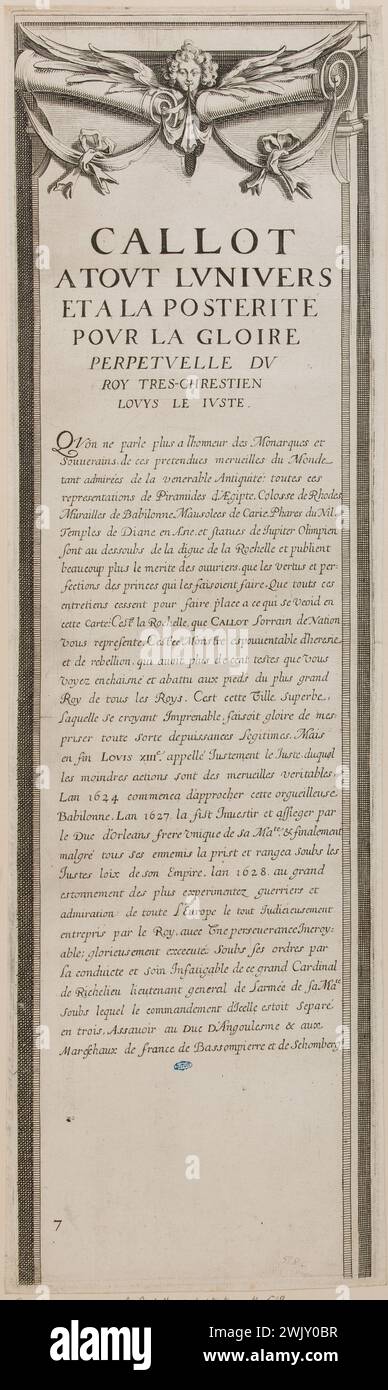 CALLOT
ATOVT LVNIVERS
ET A LA POSTERITE
POVR LA GLOIRE
PERPETVELLE DV
ROY TRES-CHRESTIEN
LOVYS LE IVSTE.
QVon ne parle plus a lhonneur des Monarques et
Souuerains, de ces pretendues merueilles du Monde
tant admirées de la venerable Antiquité: toutes ces
representations de Piramides d'Ægipte, Colosse de Rhodes,
Murailles de Babilonne, Mausolees de Carie, Phares du Nil,
Temples de Diane en Asie, et statues de Iupiter Olimpien
sont au dessoubs de la digue de la Rochelle et publient
beaucoup plus le merite des ouuriers, que les vertus et per-
fections des princes qui les faisoient faire. Que touts ces
entretiens cessent pour faire place a ce qui se veoid en
cette Carte: Cest la Rochelle, que CALLOT Lorrain de Nation
vous represente. Cest ce Monstre espouuentable dheresie
et de rebellion, qui auoit plus de cent testes que vous
voyez enchaisné et abattu aux pieds du plus grand
Roy de tous les Roys. Cest cette Ville superbe,
Laquelle se croyant Imprenable, faisoit gloire de mes-
priser toute sorte depuissances Legitimes. Mais
en fin LOVIS XIIIe. appellé Iustement le Iuste, duquel
les moindres actions sont des merueilles veritables,
Lan 1624 commenca dapprocher cette orgueilleuse
Babilonne. Lan 1627. la fist Inuestir et assieger par
le Duc d'Orleans frere vnique de sa Mate. & finalement
malgré tous ses ennemis la prist et rangea soubs les
Iustes loix de son Empire, lan 1628. au grand
estonnement des plus experimentez guerriers et
admiration de toute L'Europe le tout Iudicieusement
entrepris par le Roy, auec vne perseuerance Incroy-
able; glorieusement excecuté Soubs ses ordres par
La conduicte et soin Infatigable de ce grand Cardinal
de Richelieu lieutenant general de Larmée de sa Mate
soubs lequel le commandement dicelle estoit Separé
en trois, Assauoir au Duc D'Angoulesme & aux
Mareschaux de france de Bassompierre et de Schomberg.
7
alamy
Image ID: 2WJY0BR
www.alamy.com